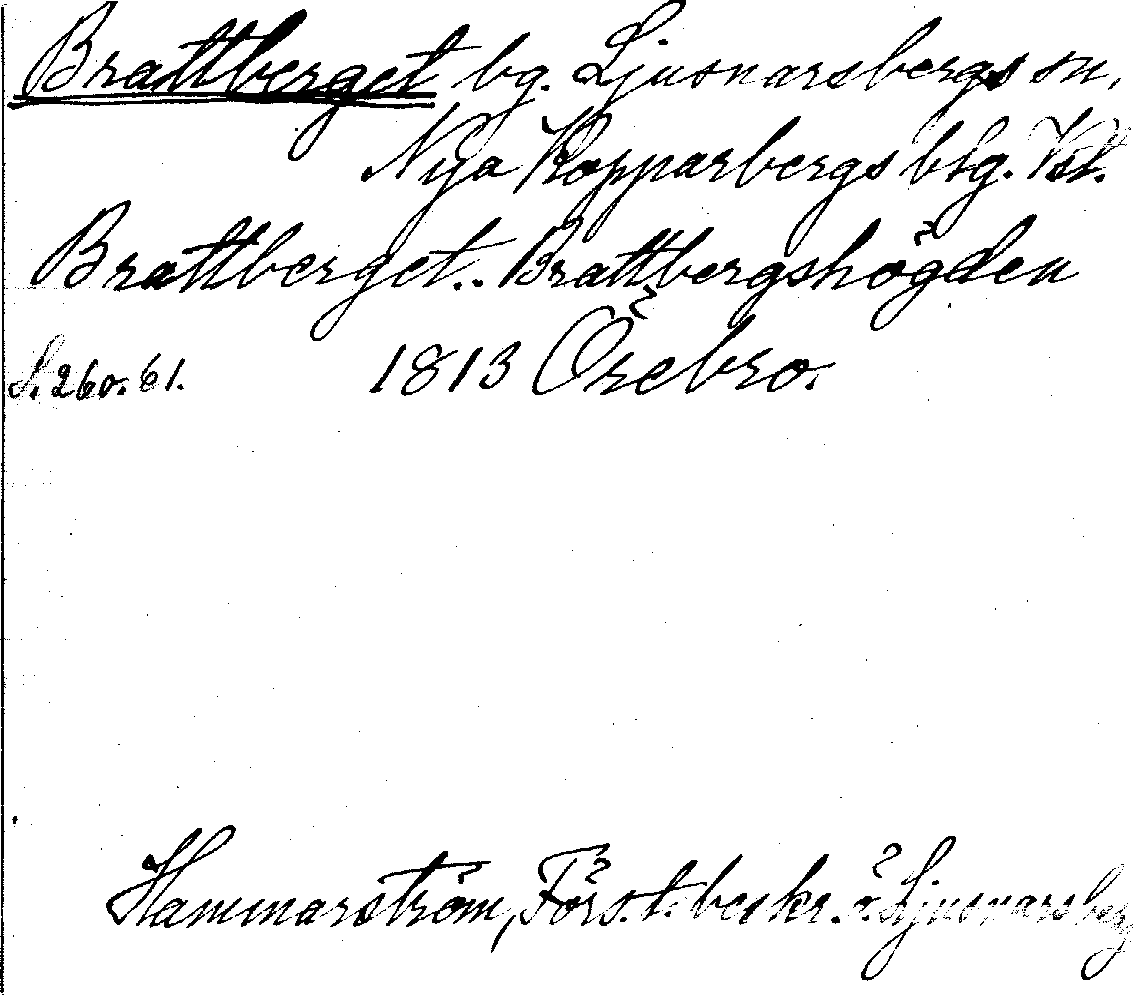 Brattberget bg. Ljusnarsbergs sn,
Nya Kopparbergs bsg. Vstl.
Brattberget.. Brattbergshögden
S. 260. 61. 1813 Örebro.
Hammarström, Förs.t. beskr. ö. Ljusnarsberg